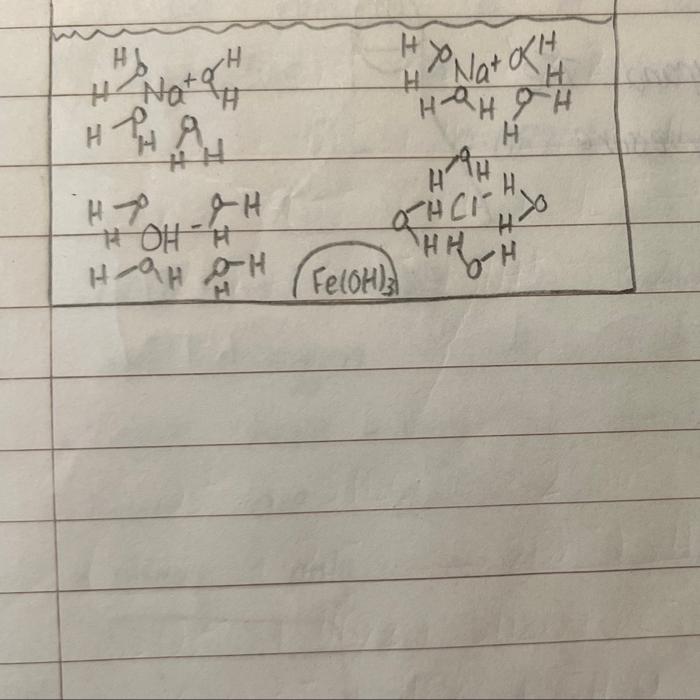 H O H H O H
H Na+ O H H Na+ O H
H O H O H H H O H O H H
H O H H O H H
H O H O H O H Cl- H O
H OH- H H H O H
H O H O H H Fe(OH)3